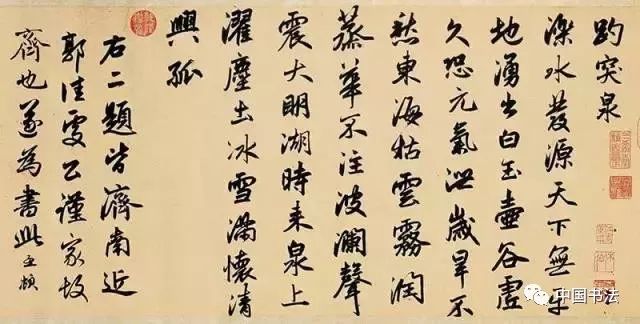 趵突泉
濼水發源天下無平
地湧出白玉壺谷虛
久恐元氣泄歲旱不
愁東海枯雲霧潤
蒸華不注波瀾聲
震大明湖時来泉上
濯塵土冰雪滿懷清
興孤
右二題皆濟南近
郭佳處公謹家故
齊也遂為書此孟頫
中国书法